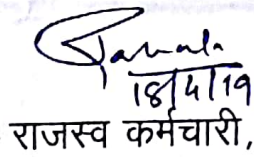 18/4/19
राजस्व कर्मचारी,